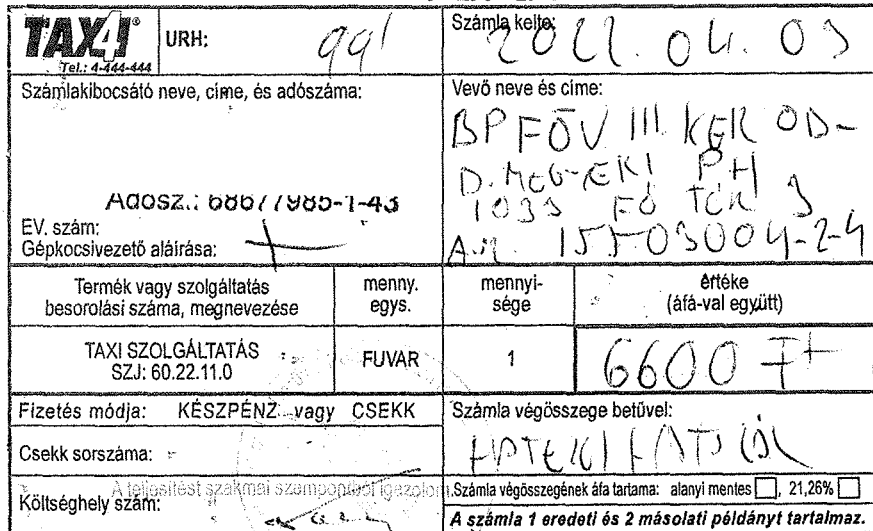 TAXI4®
Tel.: 4-444-444
URH: 991
Számla kelte: 2022. 04. 03
Számlakibocsátó neve, címe, és adószáma:
Adósz.: 68677985-1-43
EV. szám:
Gépkocsivezető aláírása:
Vevő neve és címe:
BP FŐV III KER ÓB-
1033 FŐ TÉR 3
Termék vagy szolgáltatás
besorolási száma, megnevezése
menny.
egys.
mennyi-
sége
értéke
(áfá-val együtt)
TAXI SZOLGÁLTATÁS
SZJ: 60.22.11.0
FUVAR
1
6600 Ft
Fizetés módja: KÉSZPÉNZ vagy CSEKK
Számla végösszege betűvel:
Csekk sorszáma:
A teljesítést szakmai szempontból igazolom.
Költséghely szám:
Számla végösszegének áfa tartama: alanyi mentes , 21,26%
A számla 1 eredeti és 2 másolati példányt tartalmaz.